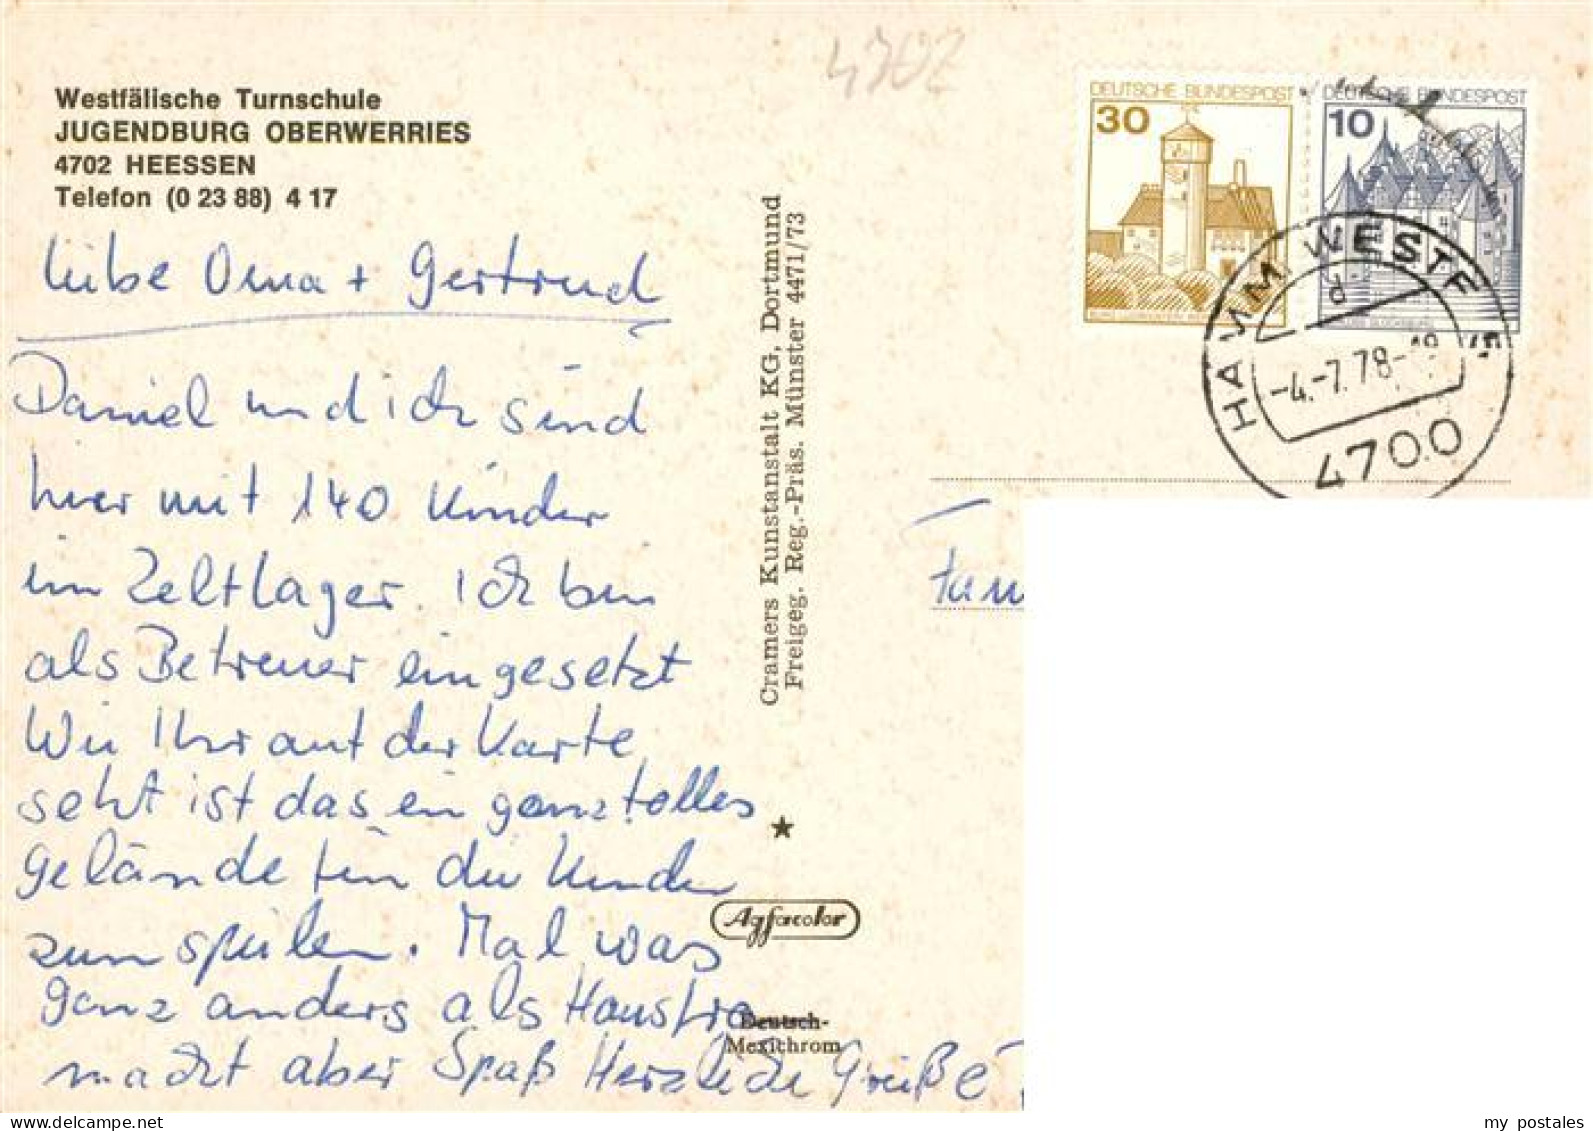 4702
Westfälische Turnschule
JUGENDBURG OBERWERRIES
4702 HEESSEN
Telefon (0 23 88) 4 17
Liebe Oma + Gertrud
Daniel und ich sind
hier mit 140 Kinder
im Zeltlager. Ich bin
als Betreuer eingesetzt
Wie Ihr auf der Karte
seht ist das ein ganz tolles
Gelände für die Kinder
zum spielen. Mal was
ganz anders als Hausfra
macht aber Spaß Herzliche Grüße
Cramers Kunstanstalt KG, Dortmund
Freigeg. Reg.-Präs. Münster 4471/73
Agfacolor
Deutsch-
Mexichrom
DEUTSCHE BUNDESPOST
30
DEUTSCHE BUNDESPOST
10
HAMM WESTF
d
-4.-7.78-18
4700
Fam
my postales